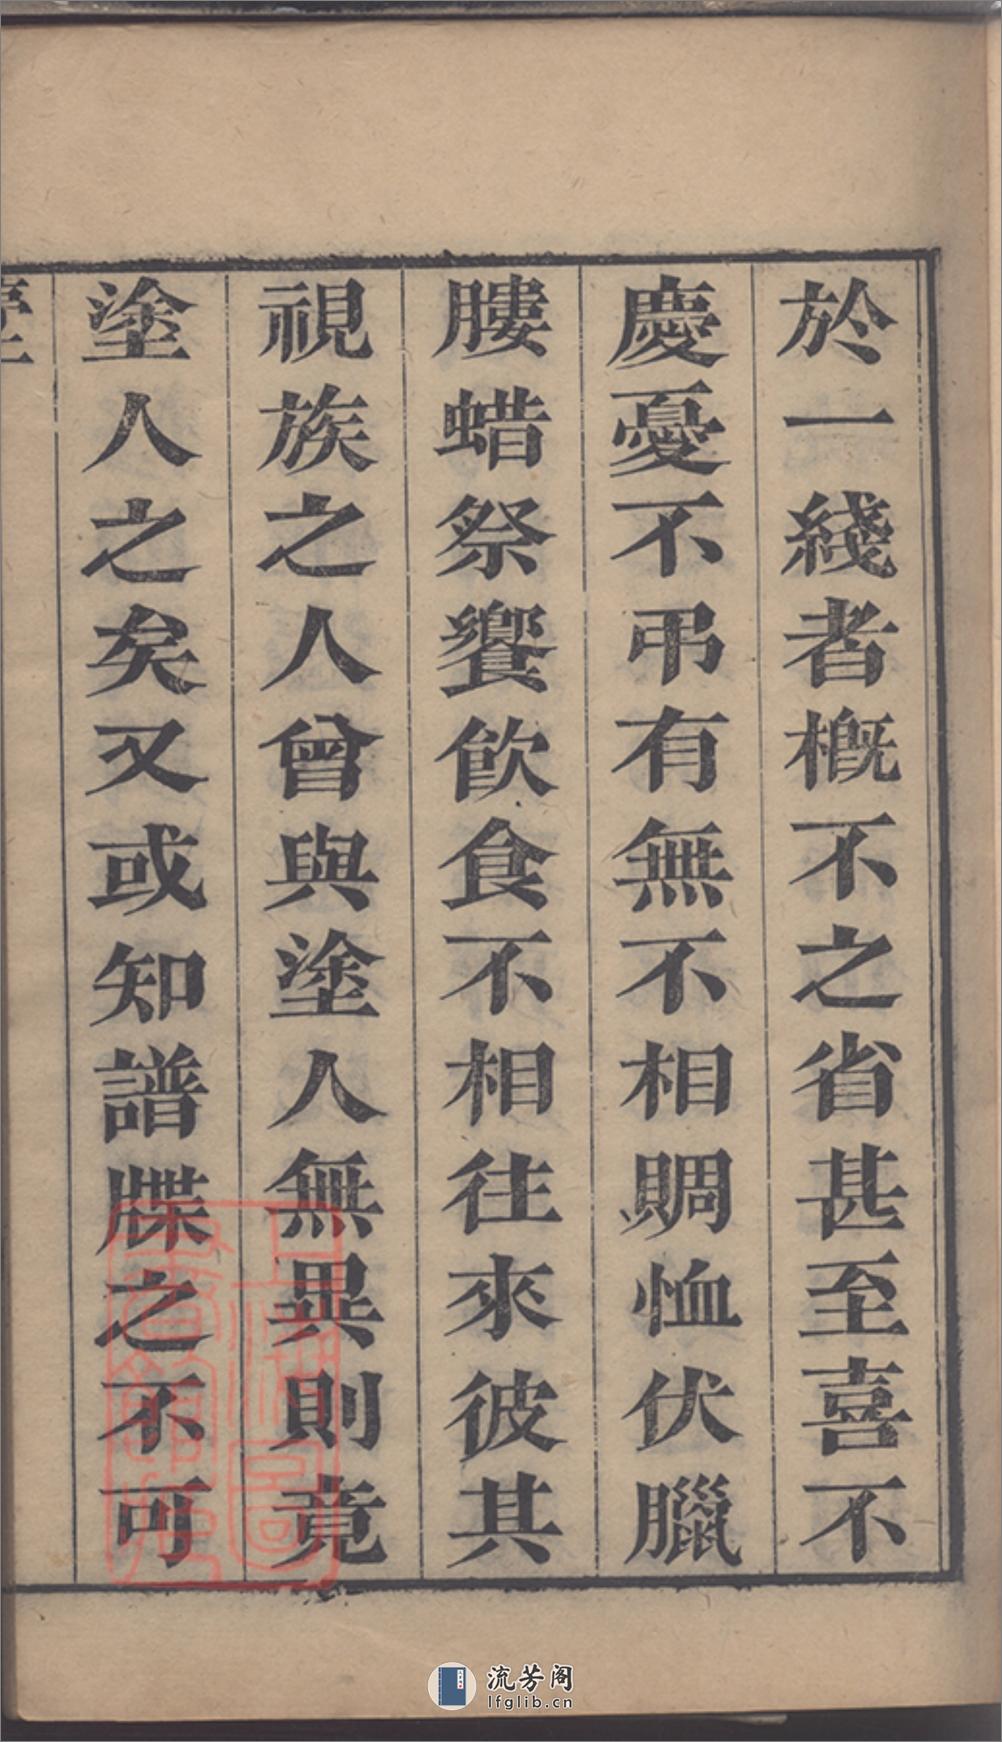 於一綫者概不之省甚至喜不
慶憂不弔有無不相賙恤伏臘
膢蜡祭饗飲食不相往來彼其
視族之人曾與塗人無異則竟
塗人之矣又或知譜牒之不可
上海圖書館藏
流芳阁
lfglib.cn